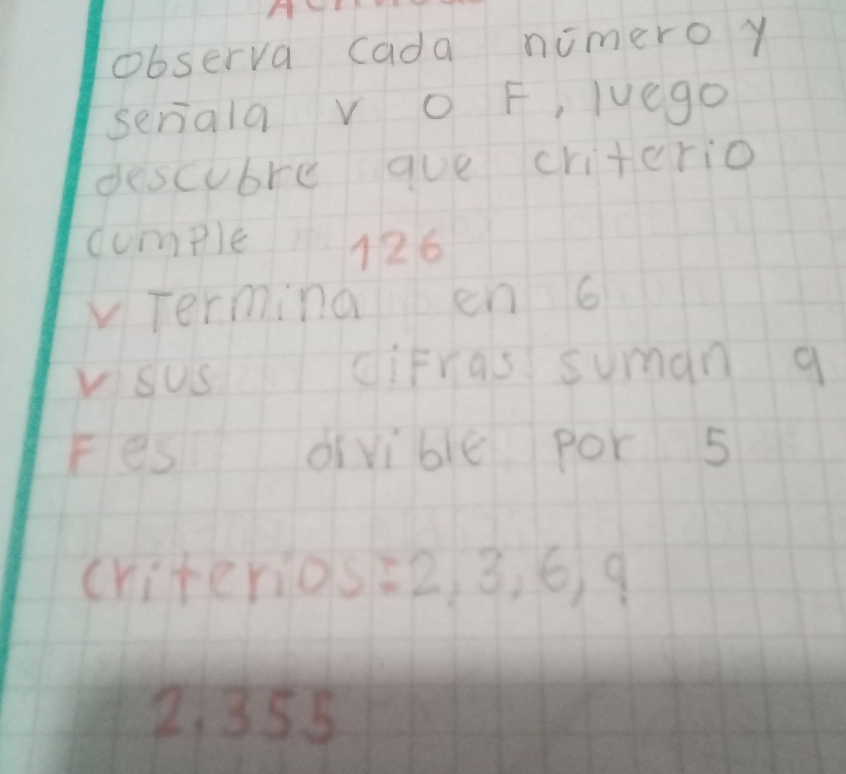 observa cada número y
señala v o F, luego
descubre que criterio
cumple 126
v Termina en 6
v sus cifras suman 9
F es divible por 5
criterios: 2, 3, 6, 9
2.355